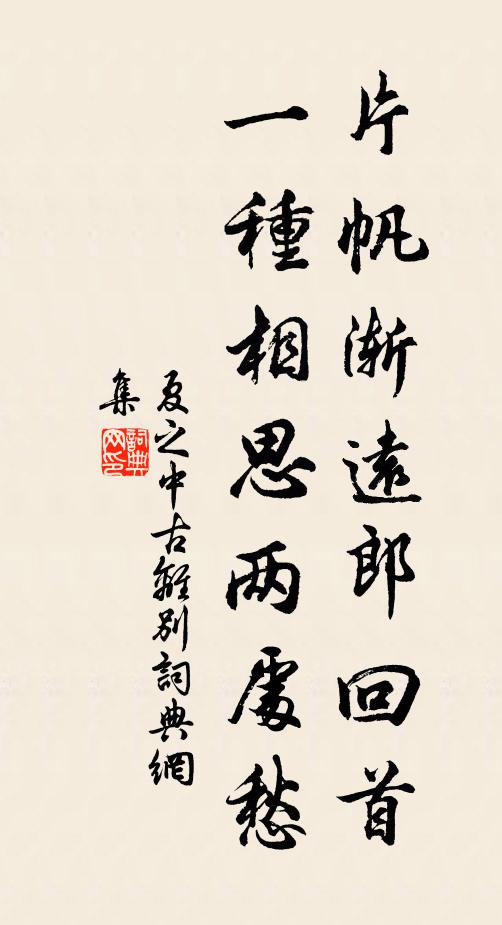 片帆漸遠郎回首
一種相思两處愁
夏之中古離別詞典網
集
詞典
网印